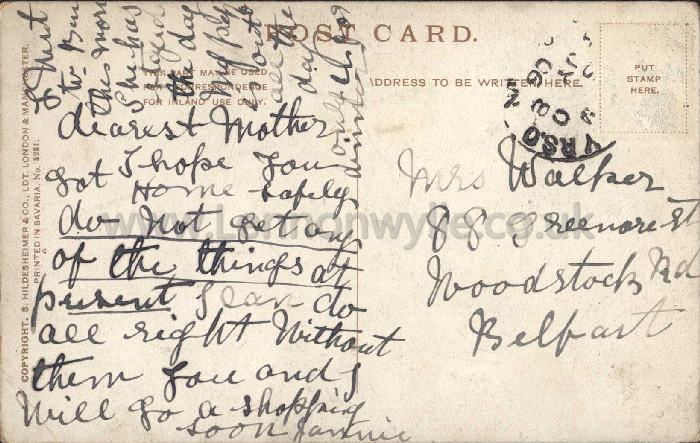 POST CARD.
THIS PART MAY BE USED
FOR CORRESPONDENCE
FOR INLAND USE ONLY.
ADDRESS TO BE WRITTEN HERE.
PUT
STAMP
HERE.
COPYRIGHT, S. HILDESHEIMER & CO., LDT. LONDON & MANCHESTER.
PRINTED IN BAVARIA. No. 5251.
dearest Mother
I hope you
got Home safely
do not get any
of the things at
present I can do
all right without
them you and I
will go a shopping
soon Fannie
this mor
She has
day
all the
day
only
dinner
Mrs Walker
88 Greenore st
Woodstock Rd
Belfast
www.Lennonwylie.co.uk